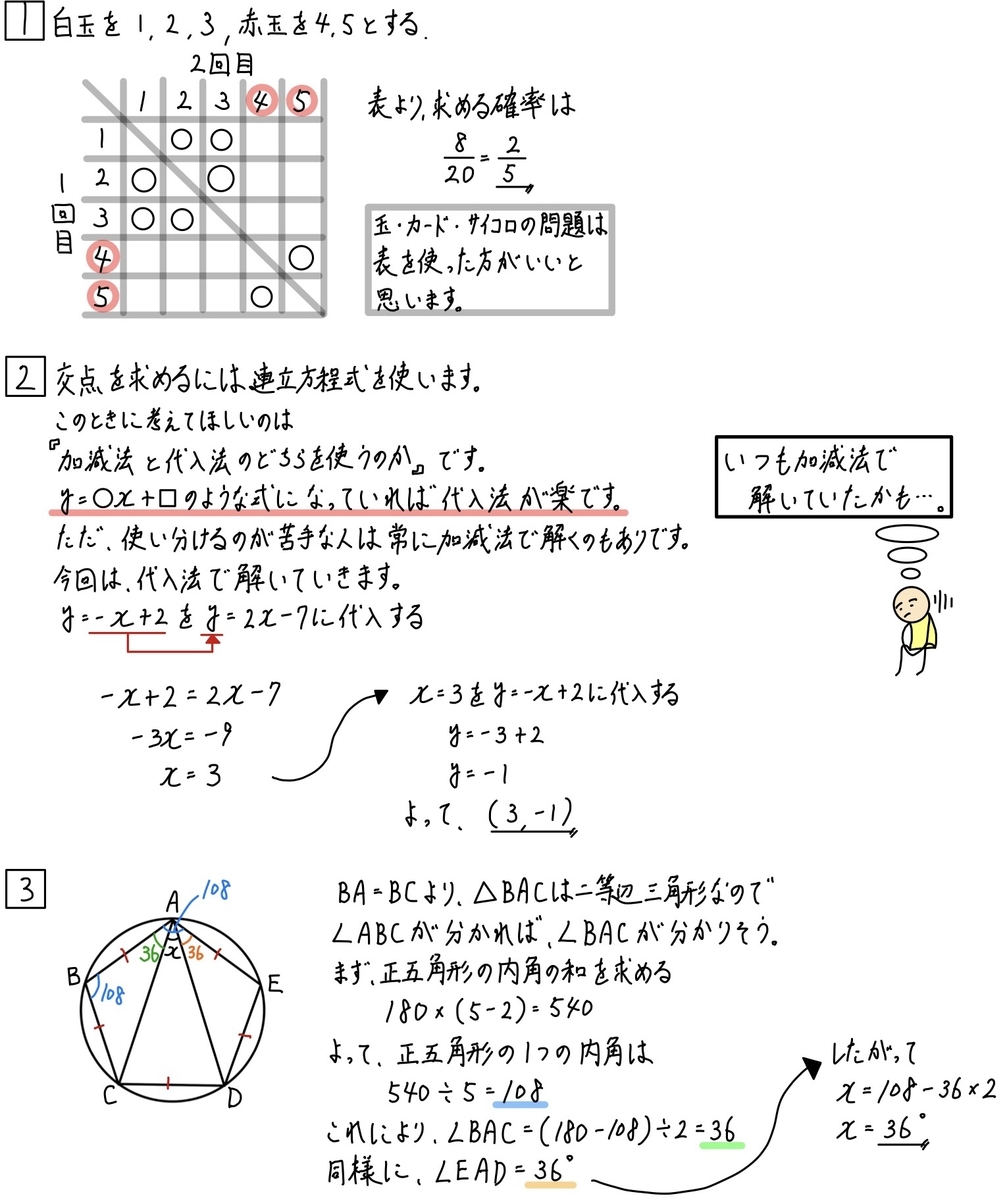 1 白玉を1,2,3,赤玉を4,5とする.
2回目
1 2 3 4 5
1回目
1 ○ ○
2 ○ ○
3 ○ ○
4 ○
5 ○
表より,求める確率は
8/20 = 2/5
玉・カード・サイコロの問題は
表を使った方がいいと
思います。
2 交点を求めるには連立方程式を使います。
このときに考えてほしいのは
『加減法と代入法のどちらを使うのか』です。
y=○x+□のような式になっていれば代入法が楽です。
ただ、使い分けるのが苦手な人は常に加減法で解くのもありです。
今回は、代入法で解いていきます。
y=-x+2をy=2x-7に代入する
いつも加減法で
解いていたかも…。
-x+2=2x-7
-3x=-9
x=3
x=3をy=-x+2に代入する
y=-3+2
y=-1
よって、(3,-1)
3
A
108
36 x 36
B
108
E
C
D
BA=BCより、△BACは二等辺三角形なので
∠ABCが分かれば、∠BACが分かりそう。
まず、正五角形の内角の和を求める
180×(5-2)=540
よって、正五角形の1つの内角は
540÷5=108
これにより、∠BAC=(180-108)÷2=36
同様に、∠EAD=36°
したがって
x=108-36×2
x=36°